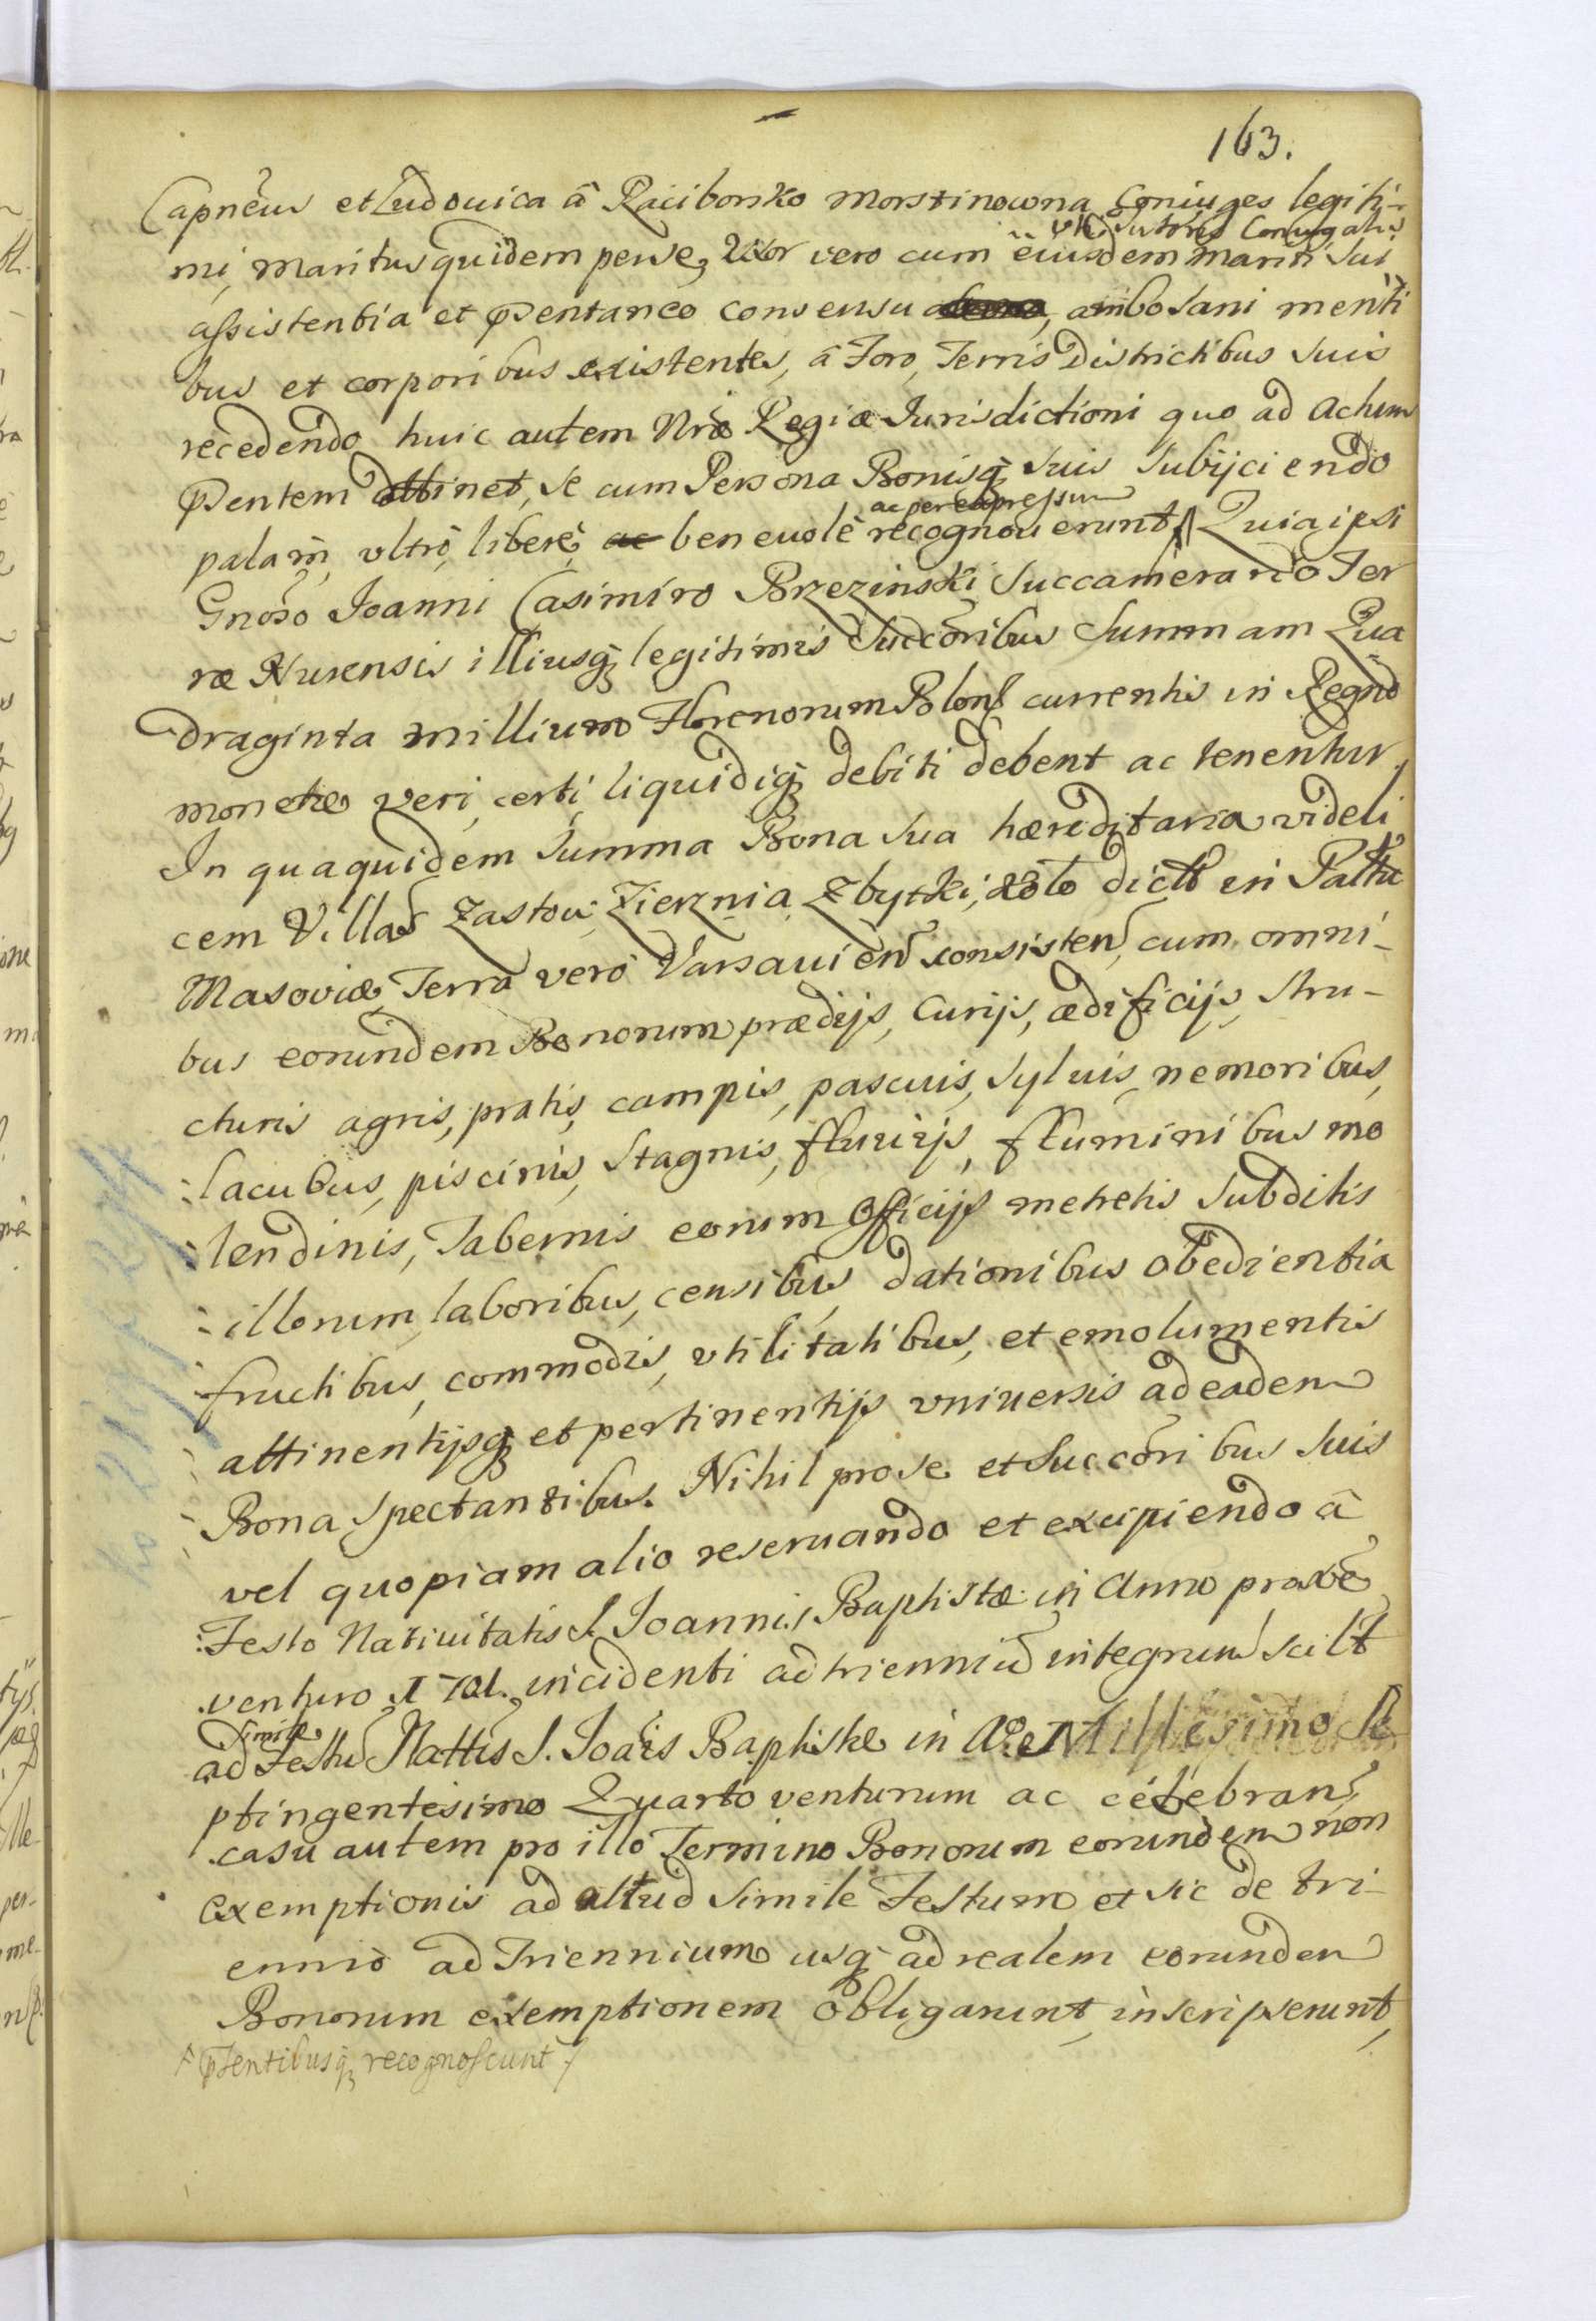 163.
Capnéus et Ludouica â Raciborsko Morstinowna Coniuges legiti-
uti tutoris Conugalis
mi, Maritus quidem per se, Uxor vero cum eiusdem mariti sui
assistentia et pntaneo consensu ambo sani menti
bus et corporibus existentes, â Foro, Terris Districtibus suis
recedendo huic autem Nrae Regiae Jurisdictioni quo ad Actum
pntem attinet, se cum Persona Bonisq suis subijciendo
ac per expressum
palam, vltrò, liberè, ac beneuolè recognouerunt, Quia ipsi
Gnoso Joanni Casimiro Brzezinski Succamerario Ter
rae Nurensis illiusq legitimis Succoribus Summam Qua
draginta millium Florenorum Polonl currentis in Regno
monetae veri, certi, liquidiq debiti debent ac tenentur
In qua quidem Summa Bona sua haereditaria videli
cem Villas Zastow, Zierznia, Zbytki, dicto in Pattu
Masoviae, Terra verò Varsauien consisten, cum omni-
bus eorundem Bonorum praedijs, Curijs, aedificijs, stru-
cturis agris, pratis, campis, pascuis, syluis, nemoribus,
lacubus, piscinis, stagnis, fluvijs, fluminibus mo
lendinis, Tabernis eorum Officijs metretis subditis
illorum, laboribus, censibus, dationibus obedientia
fructibus, commodis, vtilitatibus, et emolumentis
attinentijsq et pertinentijs vniuersis ad eadem
Bona spectantibus. Nihil pro se et Succoribus suis
vel quopiam alio reseruando et excipiendo â
Festo Natiuitatis S. Joannis Baptistae in Anno proxe
venturo 1701. incidenti ad triennium integrum scilt
simile
ad Festu Nattis S. Joais Baptistae in Ao Millesimo Se
ptingentesimo Quarto venturum ac celebran,
casu autem pro illo Termino Bonorum eorundem non
exemptionis ad aliud simile Festum et sic de tri-
ennio ad Triennium usq ad realem eorundem
Bonorum exemptionem obligarunt, inscripserunt,
pntibusq recognoscunt